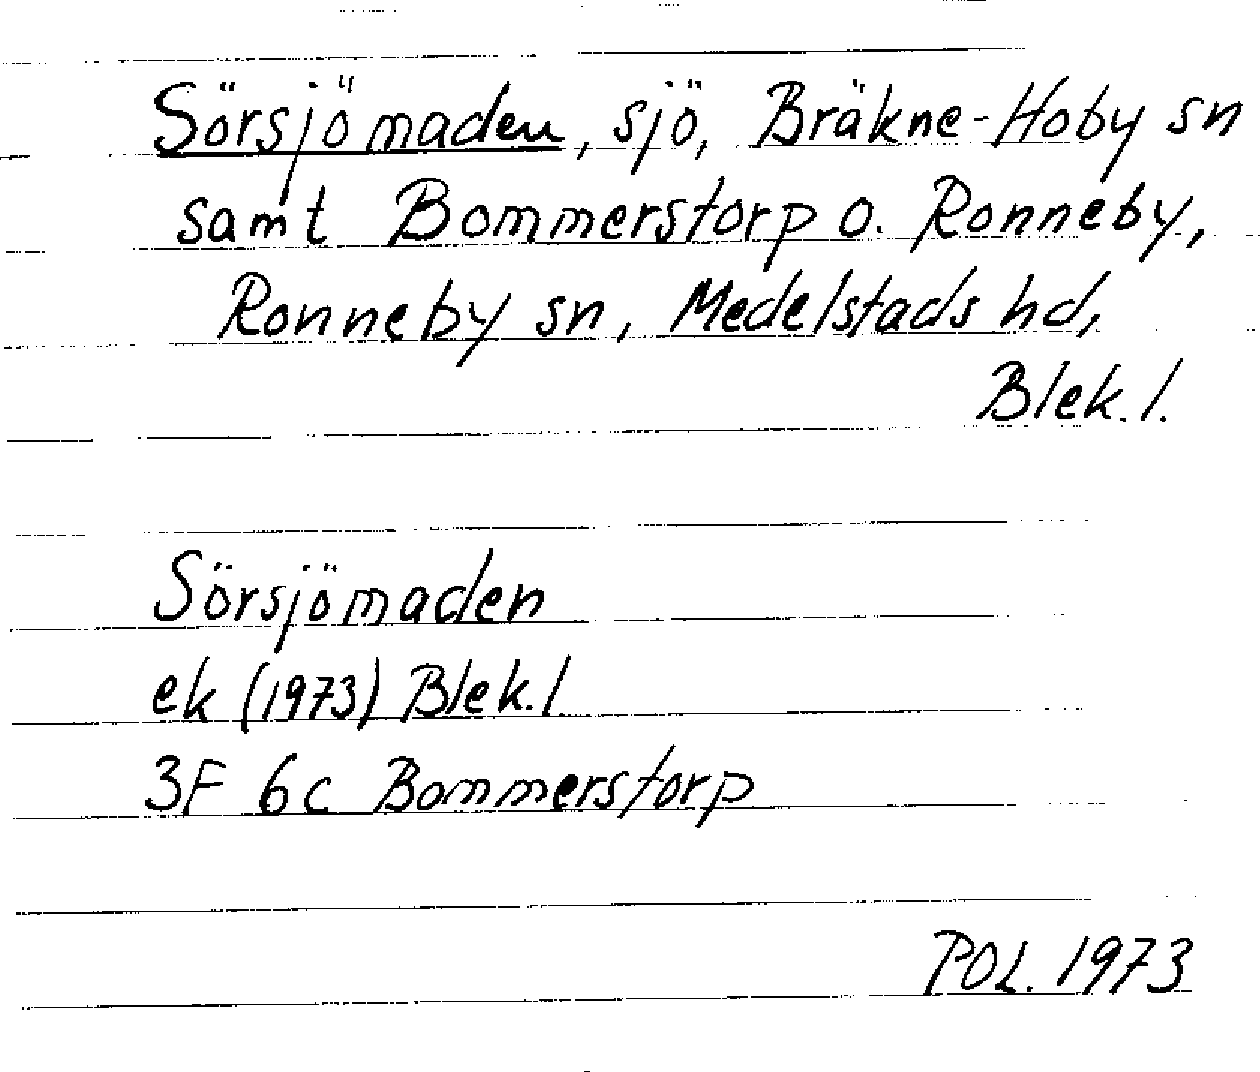 Sörsjömaden, sjö, Bräkne-Hoby sn
samt Bommerstorp o. Ronneby,
Ronneby sn, Medelstads hd,
Blek. l.
Sörsjömaden
ek (1973) Blek. l
3F 6c Bommerstorp
POL. 1973